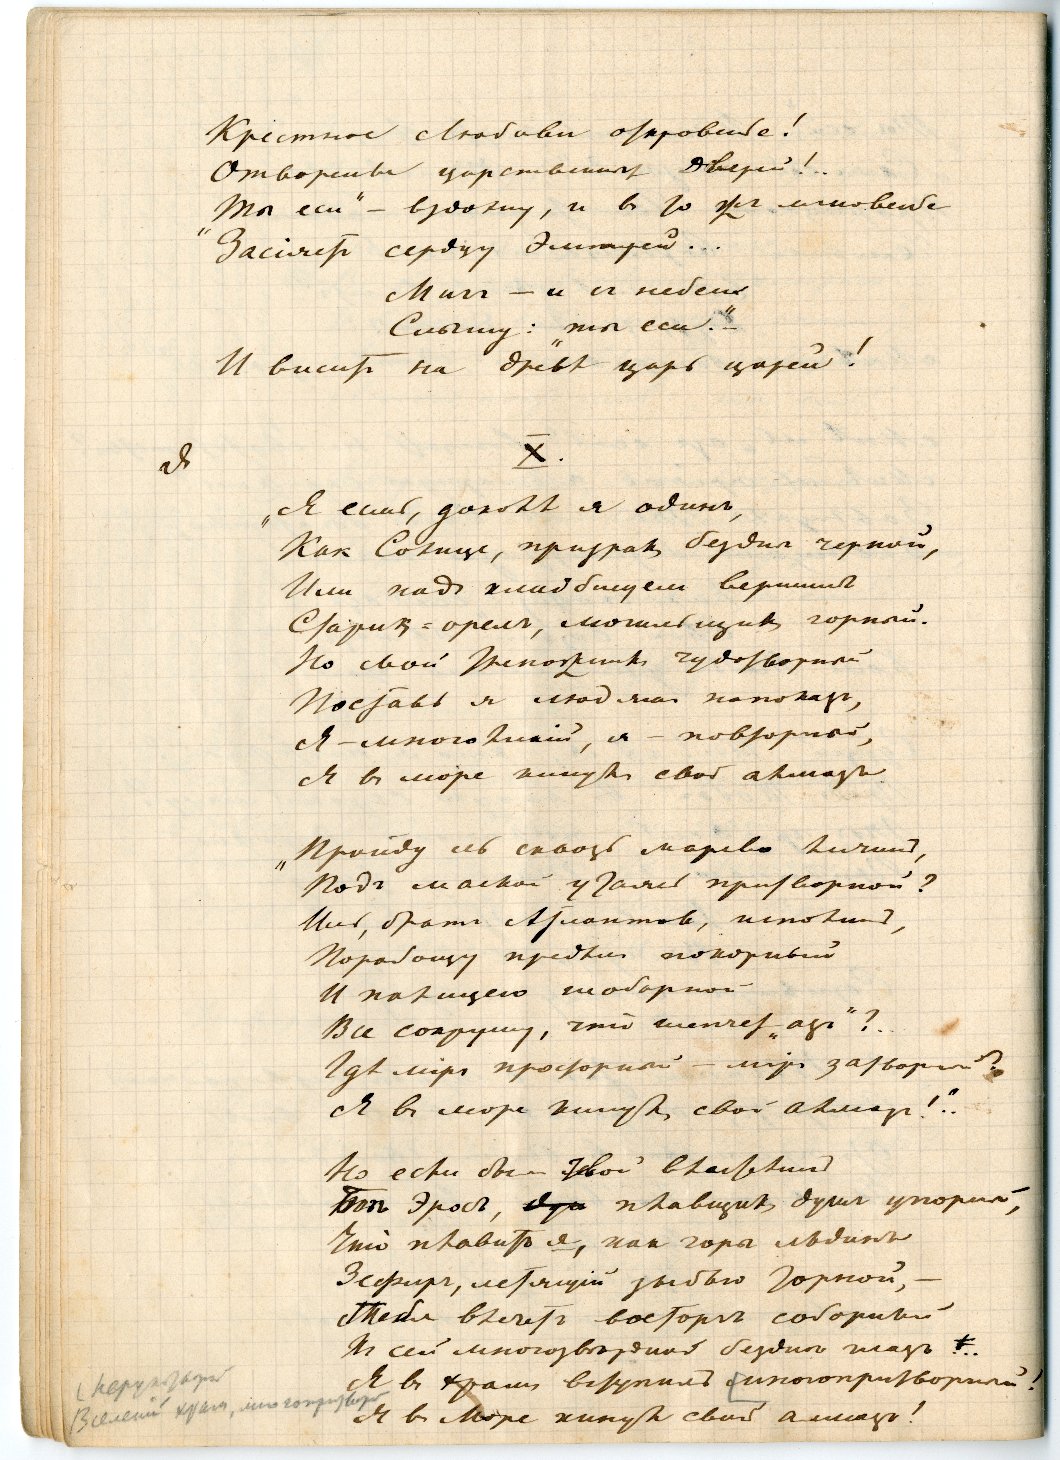 Крестное Любови откровенье!
Отворенье царственных дверей!..
"Ты еси" – вздохну, и в то ж мгновенье
Засіяетъ сердцу Эмпирей...
Мигъ – и съ небеси
Слышу: "ты еси."
И виситъ на древѣ царь царей!
Я
X.
"Я есмь, доколѣ я одинъ,
Какъ Солнце, призракъ бездны черной,
Или надъ кладбищем вершинъ
Старикъ-орелъ, могильщикъ горный.
Но мой треножникъ чудотворный
Поставь я людямъ напоказъ,
Я – многоликій, я – повторный,
Я въ море кинулъ свой алмазъ.
"Пройду ль сквозь марево личинъ,
Подъ маской утаясь притворной?
Иль, братъ Атлантовъ, исполинъ,
Порабощу предѣлы покорный
И палицею таборной
Все сокрушу, что шепчетъ "азъ"?..
Гдѣ міръ просторный – міръ затворный?
Я въ море кинулъ свой алмазъ!"..
Но если былъ твой властелинъ
Эросъ, плавщикъ души упорный,
Что плавитъ я, какъ горы льдинъ
Зефиръ, летящій зыбью горной, –
Тебя влечетъ восторгъ соборный
Къ сей многозвѣздной безднѣ глазъ...
Я въ храмъ вступилъ многопритворный!
Я въ Море кинулъ свой алмазъ!
Вселенскій храмъ, многопритворный